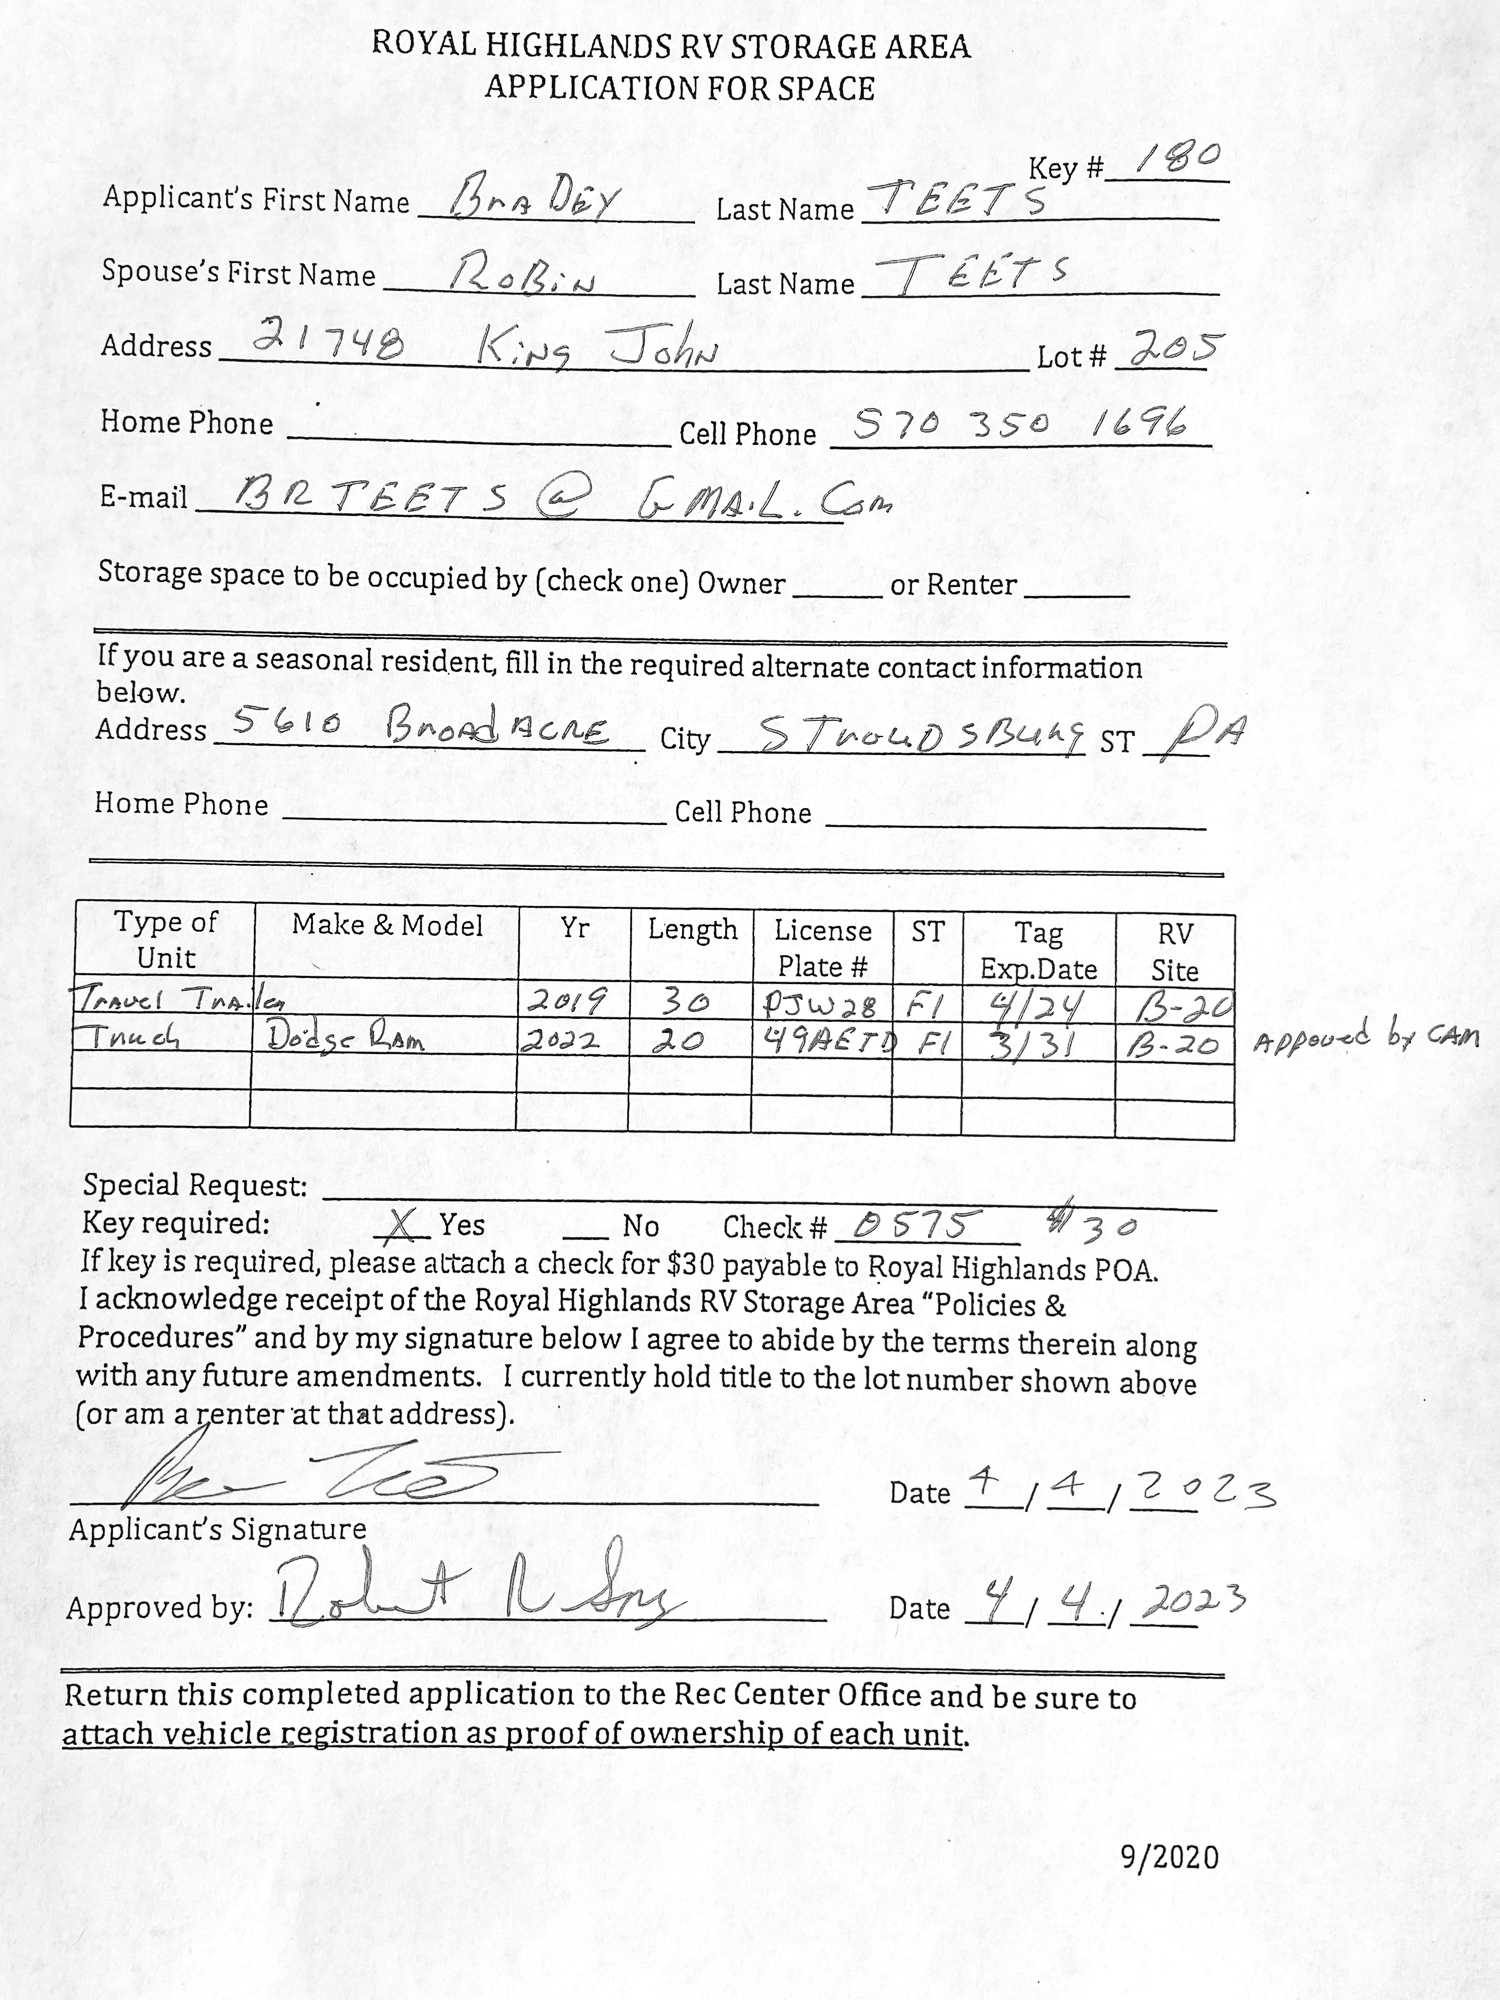 ROYAL HIGHLANDS RV STORAGE AREA
APPLICATION FOR SPACE
Key # 180
Applicant's First Name BRADEY Last Name TEETS
Spouse's First Name ROBIN Last Name TEETS
Address 21748 King John Lot # 205
Home Phone Cell Phone 570 350 1696
E-mail BRTEETS@GMAIL.Com
Storage space to be occupied by (check one) Owner or Renter
If you are a seasonal resident, fill in the required alternate contact information
below.
Address 5610 BROADACRE City STROUDSBURG ST PA
Home Phone Cell Phone
Type of Unit Make & Model Yr Length License Plate # ST Tag Exp.Date RV Site
Travel Trailer 2019 30 PJW28 Fl 4/24 B-20
Truck Dodge Ram 2022 20 49AETD Fl 3/31 B-20 Appoued by CAM
Special Request:
Key required: X Yes No Check # 0575 $30
If key is required, please attach a check for $30 payable to Royal Highlands POA.
I acknowledge receipt of the Royal Highlands RV Storage Area “Policies &
Procedures” and by my signature below I agree to abide by the terms therein along
with any future amendments. I currently hold title to the lot number shown above
(or am a renter at that address).
Date 4/4/2023
Applicant's Signature
Approved by: Robert R Date 4/4/2023
Return this completed application to the Rec Center Office and be sure to
attach vehicle registration as proof of ownership of each unit.
9/2020